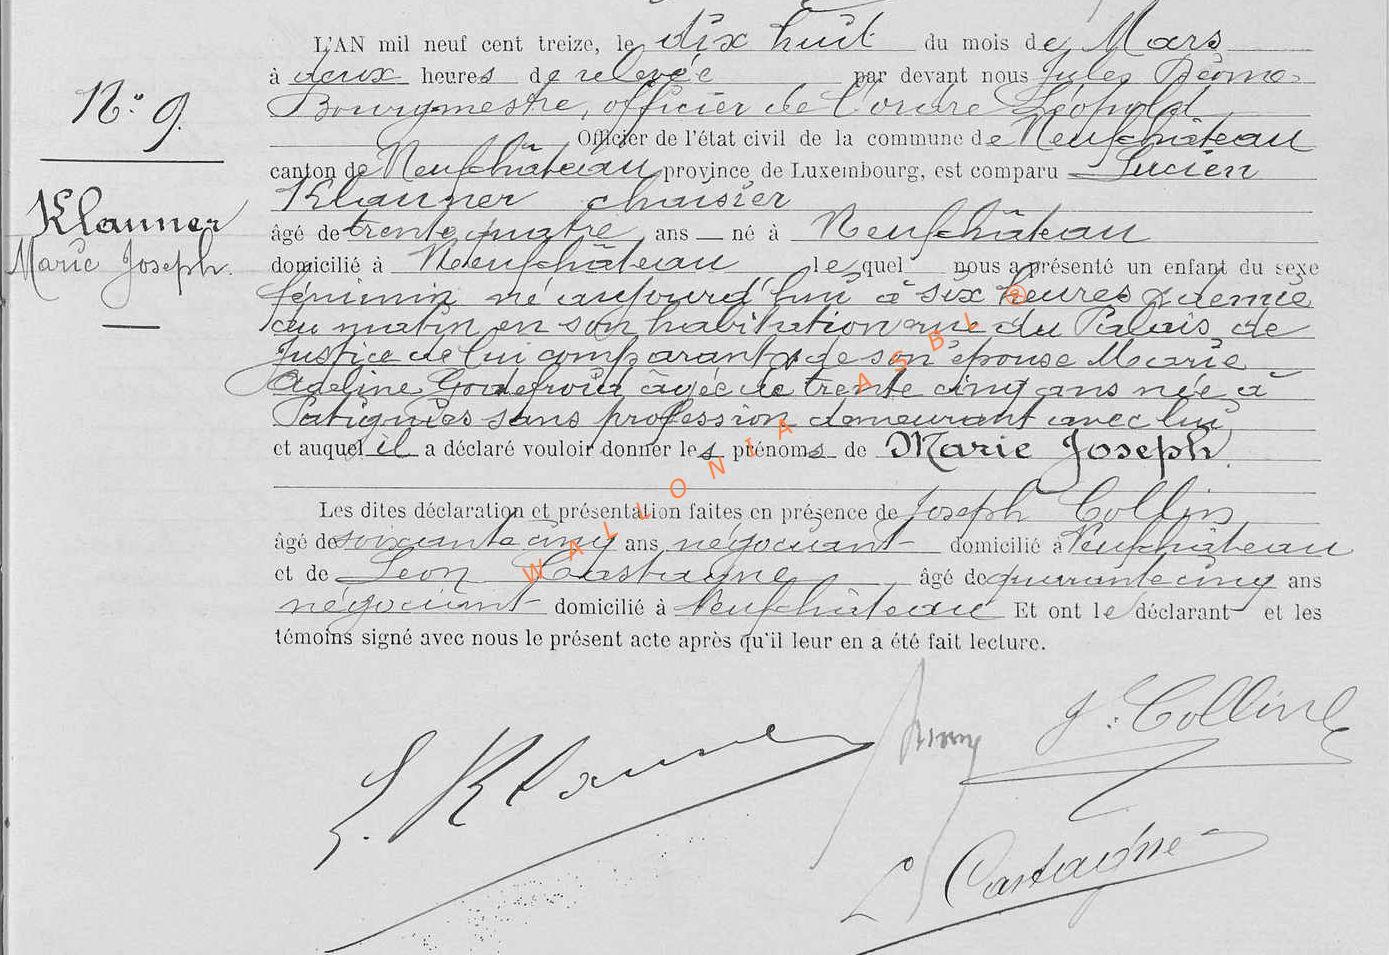 L'AN mil neuf cent treize, le dix huit du mois de Mars
à deux heures de relevée par devant nous Jules
Bourgmestre, officier de l'ordre Léopold
Officier de l'état civil de la commune de Neufchâteau
canton de Neufchâteau province de Luxembourg, est comparu Lucien
Klauner chaisier
âgé de trente quatre ans né à Neufchâteau
domicilié à Neufchâteau lequel nous a présenté un enfant du sexe
féminin né aujourd'hui à six heures & demie
du matin en son habitation rue du Palais de
Justice de lui comparant & de son épouse Marie
Adeline Godefroid âgée de trente cinq ans née à
Patignies sans profession demeurant avec lui
et auquel il a déclaré vouloir donner les prénoms de Marie Joseph.
Les dites déclaration et présentation faites en présence de Joseph Collin
âgé de soixante cinq ans négociant domicilié à Neufchâteau
et de Léon Castaigne âgé de quarante cinq ans
négociant domicilié à Neufchâteau Et ont le déclarant et les
témoins signé avec nous le présent acte après qu'il leur en a été fait lecture.
N° 9.
Klauner
Marie Joseph.
L. Klauner
J. Collin
L Castaigne
WALLONIA ASBL ®